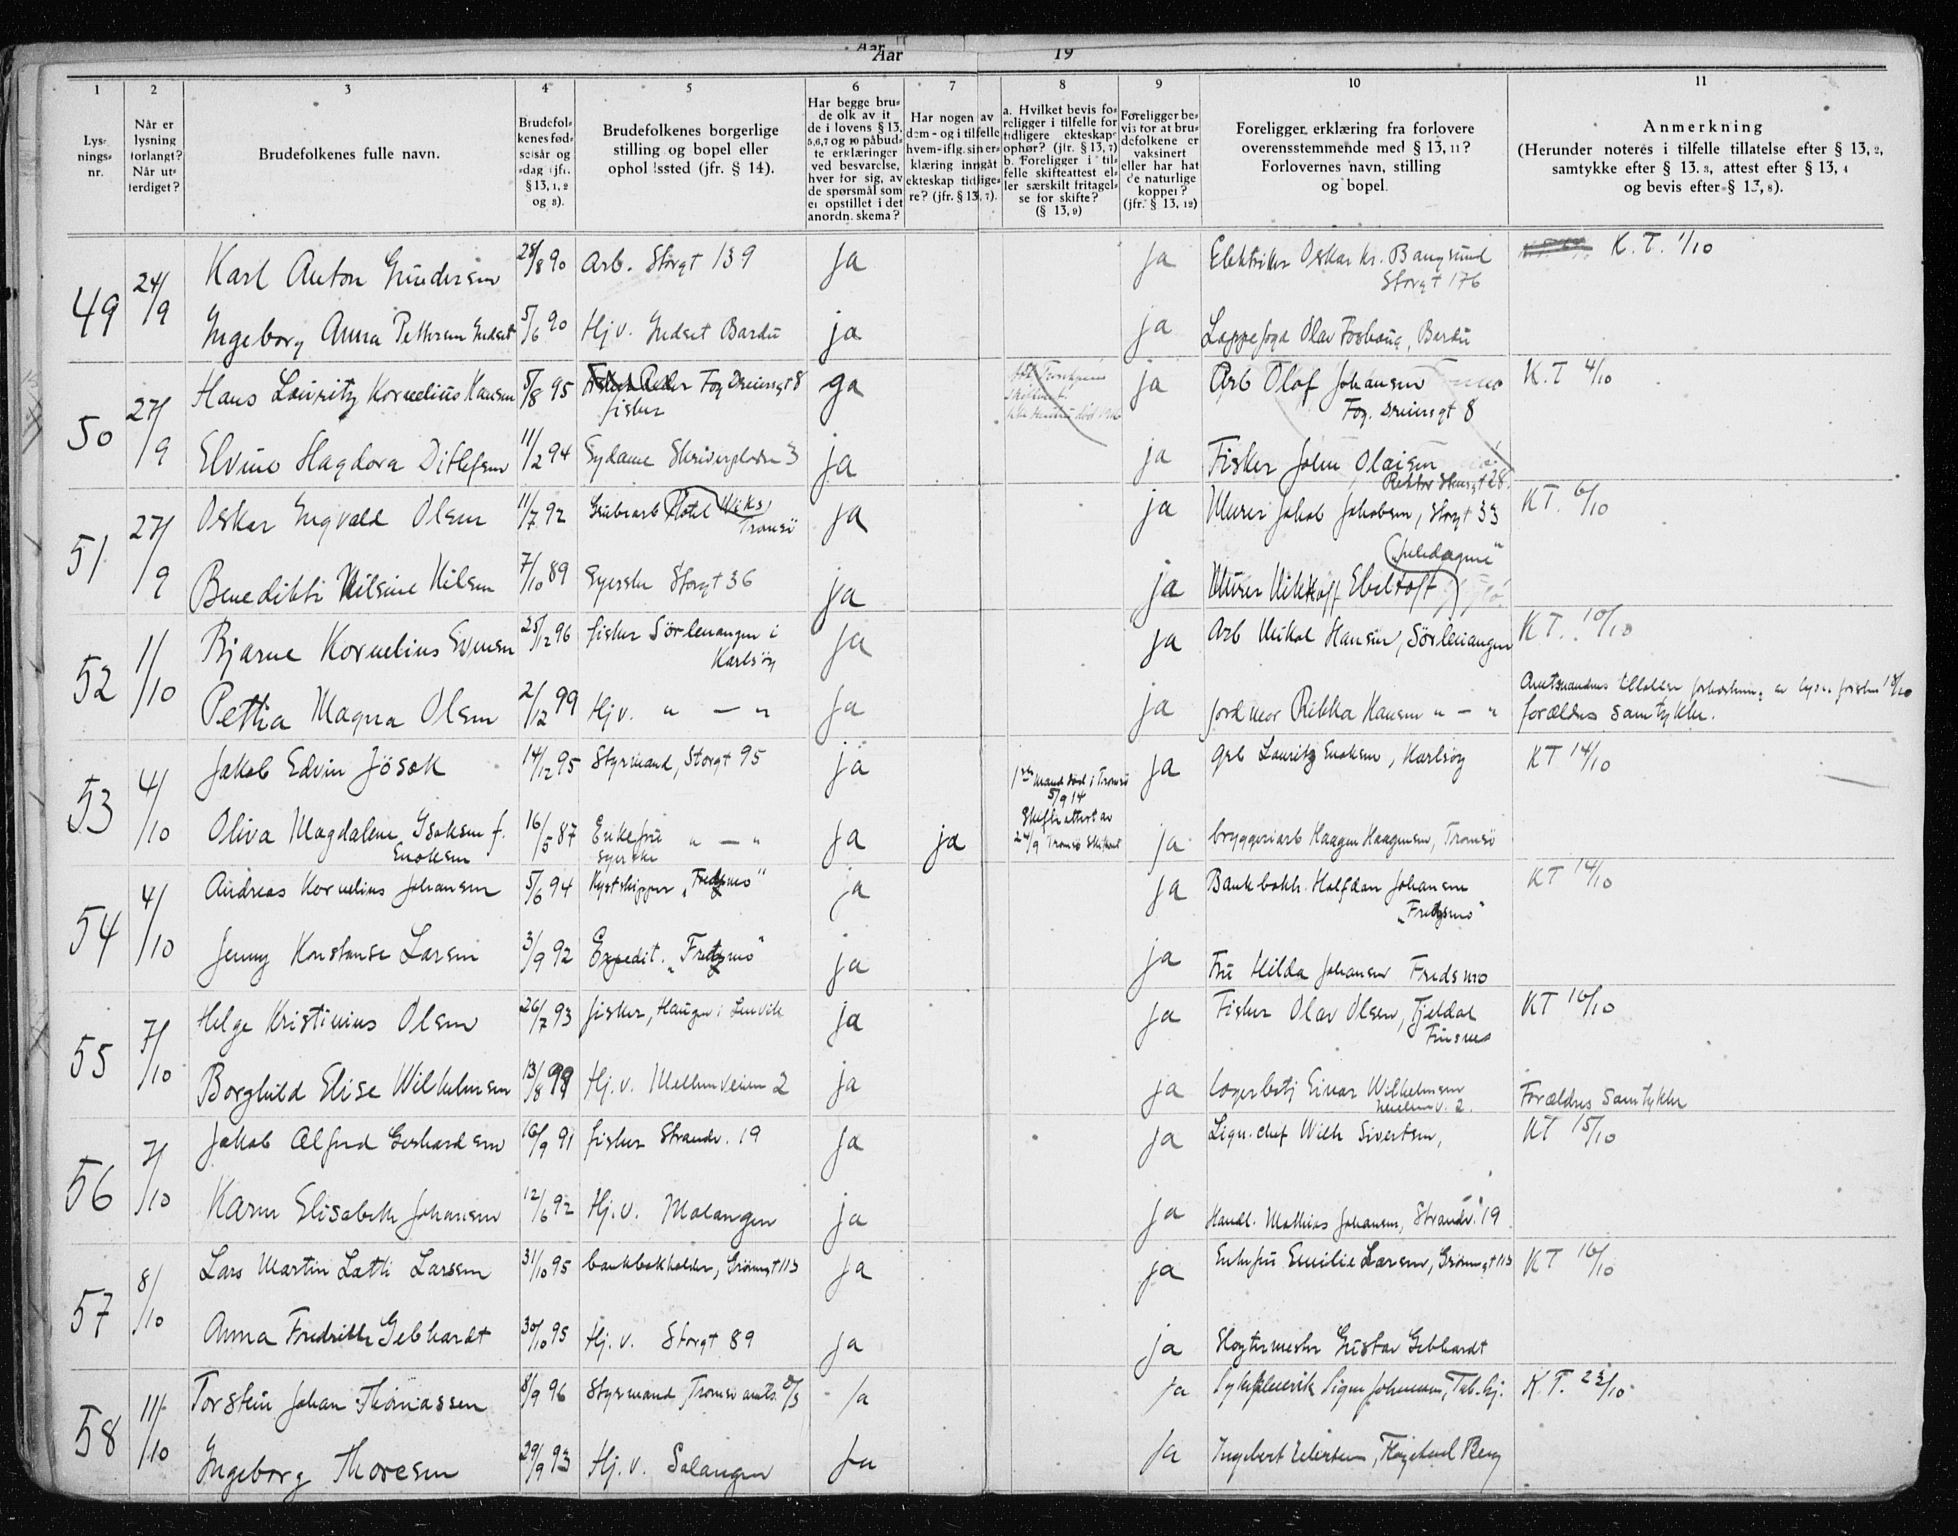 Aar
Aar 19
1 2 3 4 5 6 7 8 9 10 11
Lysningsnr.
Når er lysning forlangt? Når utferdiget?
Brudefolkenes fulle navn.
Brudefolkenes fødselsår og -dag (jfr. § 13, 1, 2 og 3).
Brudefolkenes borgerlige stilling og bopel eller opholdssted (jfr. § 14).
Har begge brudefolk av it de i lovens § 13, 5,6,7 og 10 påbudte erklæringer ved besvarelse, hver for sig, av de spørsmål som er opstillet i det anordn. skema?
Har nogen av dem - og i tilfelle hvem - iflg. sin erklæring inngått ekteskap tidligere? (jfr. § 13, 7).
a. Hvilket bevis foreligger i tilfelle for tidligere ekteskaps ophør? (jfr. § 13, 7) b. Foreligger i tilfelle skifteattest eller særskilt fritagelse for skifte? (§ 13, 9)
Foreligger bevis for at brudefolkene er vaksinert eller har hat de naturlige kopper? (jfr. § 13, 12)
Foreligger erklæring fra forlovere overensstemmende med § 13, 11? Forlovernes navn, stilling og bopel.
Anmerkning (Herunder noteres i tilfelle tillatelse efter § 13, 2, samtykke efter § 13, 3, attest efter § 13, 4 og bevis efter § 13, 8).
49 24/9 Karl Anton Gundersen 28/8 90 Arb. Storgt 139 ja ja Elektriker Oskar Kr. Bangsund Storgt 176 K. T. 1/10
Ingeborg Anna Pettersen Indset 5/6 90 Hj. v. Indset Bardu ja ja Lappefogd Olav Bardu
50 27/9 Hans Lauritz Kornelius Hansen 5/8 95 Fog Dreiersgt 8 fisker ja ja Arb Olaf Johansen Fog. Dreiersgt 8 K. T 4/10
Elvine Hagdora Ditlefsen 11/2 94 Sydame Skriverpladsen 3 ja ja Fisker John Olaisen Rektor Steensgt 28
51 27/9 Oskar Ingvald Olsen 11/7 92 Grubearb Hotel Viks, Tromsö ja ja Murer Jakob Jakobsen, Storgt 33 KT. 6/10
Benedikti Nilsine Nilsen 7/10 89 Syerske Storgt 36 ja ja Murer Ebeltoft
52 1/10 Bjarne Kornelius Evensen 25/12 96 fisker Sörlenangen i Karlsöy ja ja Arb Nikol Hansen, Sörlenangen KT. 10/10
Pettra Magna Olsen 2/12 99 Hj v. " — " ja ja jordmor Rikka Hansen " — " Amtmandens tillatelse 10/10 forældres samtykke.
53 4/10 Jakob Edvin Jösok 14/12 95 Styrmand, Storgt 95 ja ja Arb Lauritz Enoksen, Karlsöy KT 14/10
Oliva Magdalene Isaksen f. Enoksen 16/5 87 Enkefru " — " syerske ja ja 1ste mand död i Tromsö 5/9 14 Skifteattest av 24/9 Tromsö Skifteret ja bryggeriarb Haagen Haagensen, Tromsö
54 4/10 Andreas Kornelius Johansen 5/6 94 Kystskipper „Fredsmo" ja ja Bankbokh. Halfdan Johansen „Fredsmo" KT 14/10
Jenny Konstanse Larsen 3/9 92 Expedit. „Fredsmo" ja ja Fru Hilda Johansen Fredsmo
55 7/10 Helge Kristinius Olsen 26/7 93 fisker, Haugen i Lenvik ja ja Fisker Olav Olsen, Fjeldal Finsnes KT 16/10
Borghild Elise Wilhelmsen 13/8 99 Hj. v. Mellemveien 2 ja ja Lagerbetj Einar Wilhelmsen Mellemv. 2. Forældres samtykke
56 7/10 Jakob Alfred Gerhardsen 16/9 91 fisker Strandv. 19 ja ja Lign. chef Wilh Sivertsen, KT 15/10
Karen Elisabeth Johansen 12/6 92 Hj. v. Malangen ja ja Handl. Mathias Johansen, Strandv. 19
57 8/10 Lars Martin Latti Larsen 31/10 95 bankbokholder, Grönnegt 113 ja ja Enkefru Emilie Larsen, Grönnegt 113 KT 16/10
Anna Fredrikke Gebhardt 30/10 95 Hj. v. Storgt 89 ja ja Slagtermester Gustav Gebhardt
58 11/10 Torstein Johan Thomassen 8/9 96 Styrmand, Tromsö amts. ja ja Signe Johansen, K. T. 23/10
Ingeborg Thoresen 29/9 93 Hj. v. Salangen ja ja Ingebert Berg